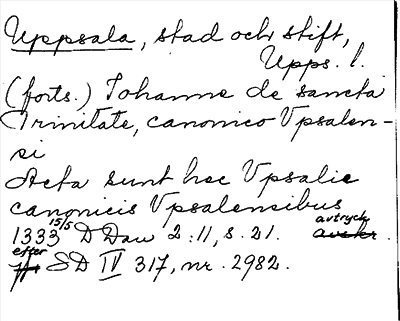 Uppsala, stad och stift,
Upps. l.
(forts.) Johanne de sancta
Trinitate, canonico Vpsalen-
si
Acta sunt hec Vpsalie
canonicis Vpsalensibus
1333 15/5 D Dau 2:11, s. 21. avtryck
efter SD IV 317, nr. 2982.